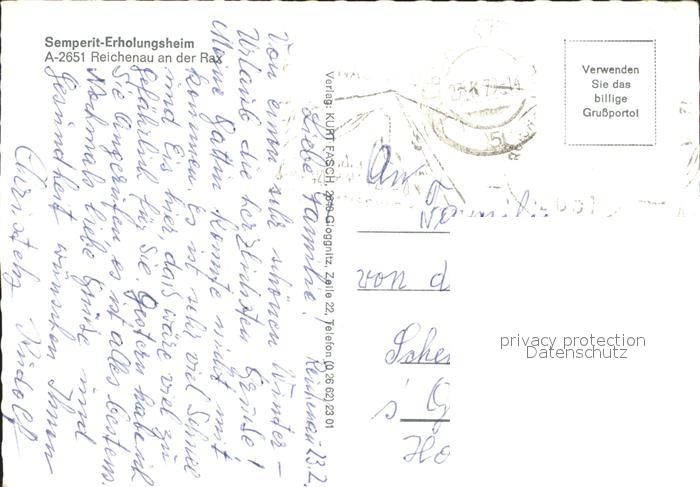 Semperit-Erholungsheim
A-2651 Reichenau an der Rax
Verwenden
Sie das
billige
Grußporto!
Verlag: KURT FASCH, 2640 Gloggnitz, Zeile 22, Telefon (0 26 62) 23 01
Reichenau 23.2.
Liebe Familie!
Von einem sehr schönen Winter-
Urlaub die herzlichsten Grüße!
Meine Gattin konnte nicht mit
kommen. Es ist sehr viel Schnee
und Eis hier, das wäre viel zu
gefährlich für Sie. Gestern habe ich
Sie angerufen es ist alles bestens.
Nochmals liebe Grüße und
Gesundheit wünschen Ihnen
Rudolf
An
von d
s' G
Ho
privacy protection
Datenschutz